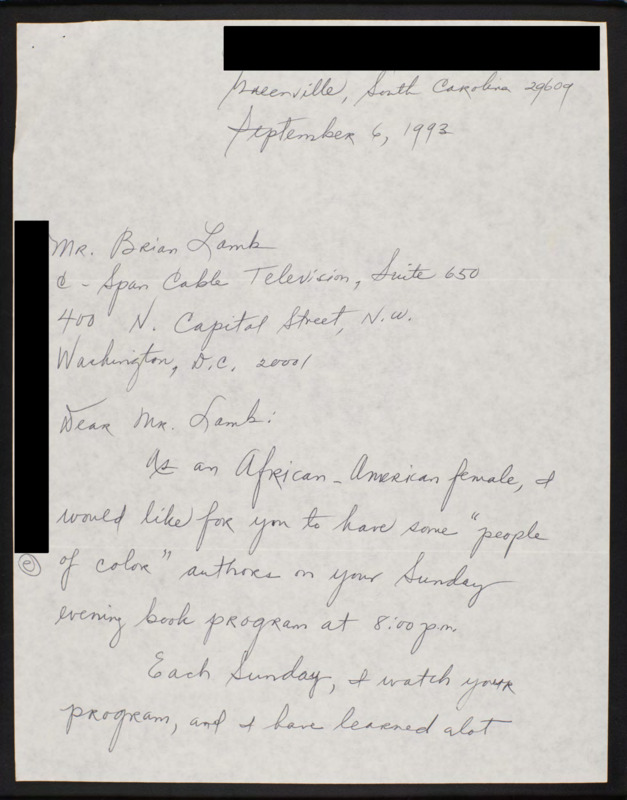 Greenville, South Carolina 29609
September 6, 1993
Mr. Brian Lamb
C-Span Cable Television, Suite 650
400 N. Capitol Street, N.W.
Washington, D.C. 20001
Dear Mr. Lamb:
As an African-American female, I
would like for you to have some "people
of color" authors on your Sunday
evening book program at 8:00 p.m.
Each Sunday, I watch your
program, and I have learned alot